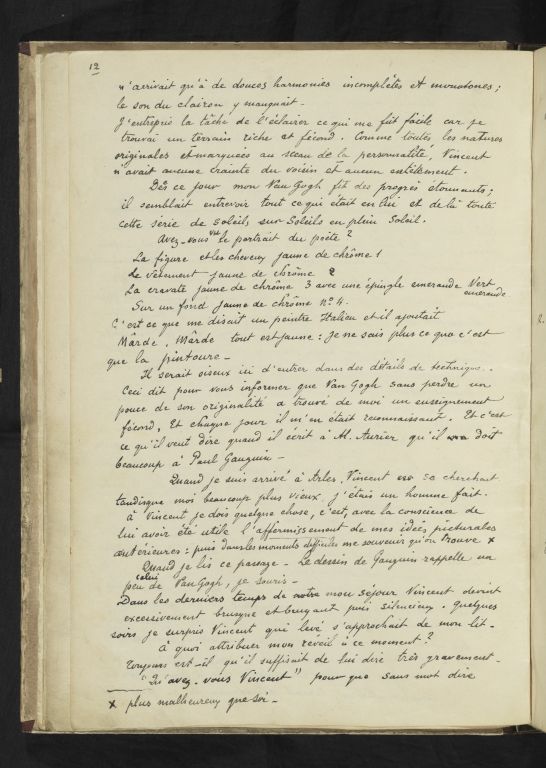 12
n'arrivait qu'à de douces harmonies incomplètes et monotones;
le son du clairon y manquait -
J'entrepris la tâche de l'éclairer ce qui me fût facile car je
trouvai un terrain riche et fécond. Comme toutes les natures
originales et marquées au sceau de la personnalité, Vincent
n'avait aucune crainte du voisin et aucun entêtement.
Dès ce jour mon Van Gogh fit des progrès étonnants;
il semblait entrevoir tout ce qui était en lui et de là toute
cette série de soleils, sur Soleils en plein Soleil.
Avez-vous vu le portrait du poëte?
La figure et les cheveux jaune de chrôme 1
Le vêtement jaune de chrôme 2
La cravate jaune de chrôme 3 avec une épingle emeraude Vert
emeraude
Sur un fond jaune de chrôme No 4.
C'est ce que me disait un peintre Italien et il ajoutait
Mârde, Mârde tout est jaune: je ne sais plus ce que c'est
que la pintoure -
Il serait oiseux ici d'entrer dans des détails de technique.
Ceci dit pour vous informer que Van Gogh sans perdre un
pouce de son originalité a trouvé de moi un enseignement
fécond, Et chaque jour il m'en était reconnaissant. Et c'est
ce qu'il veut dire quand il écrit à M. Aurier qu'il doit
beaucoup à Paul Gauguin -
Quand je suis arrivé à Arles, Vincent se cherchait
tandisque moi beaucoup plus vieux, j'étais un homme fait.
à Vincent je dois quelque chose, c'est, avec la conscience de
lui avoir été utile l'affermissement de mes idées picturales
antérieures: puis dans les moments difficiles me souvenir qu'on trouve x
Quand je lis ce passage - Le dessin de Gauguin rappelle un
peu celui de Van Gogh, je souris -
Dans les derniers temps de mon séjour Vincent devint
excessivement brusque et bruyant puis silencieux. Quelques
soirs je surpris Vincent qui levé s'approchait de mon lit -
à quoi attribuer mon réveil à ce moment?
Toujours est-il qu'il suffisait de lui dire très gravement -
"Qu'avez-vous Vincent" pour que sans mot dire
x plus malheureux que soi -